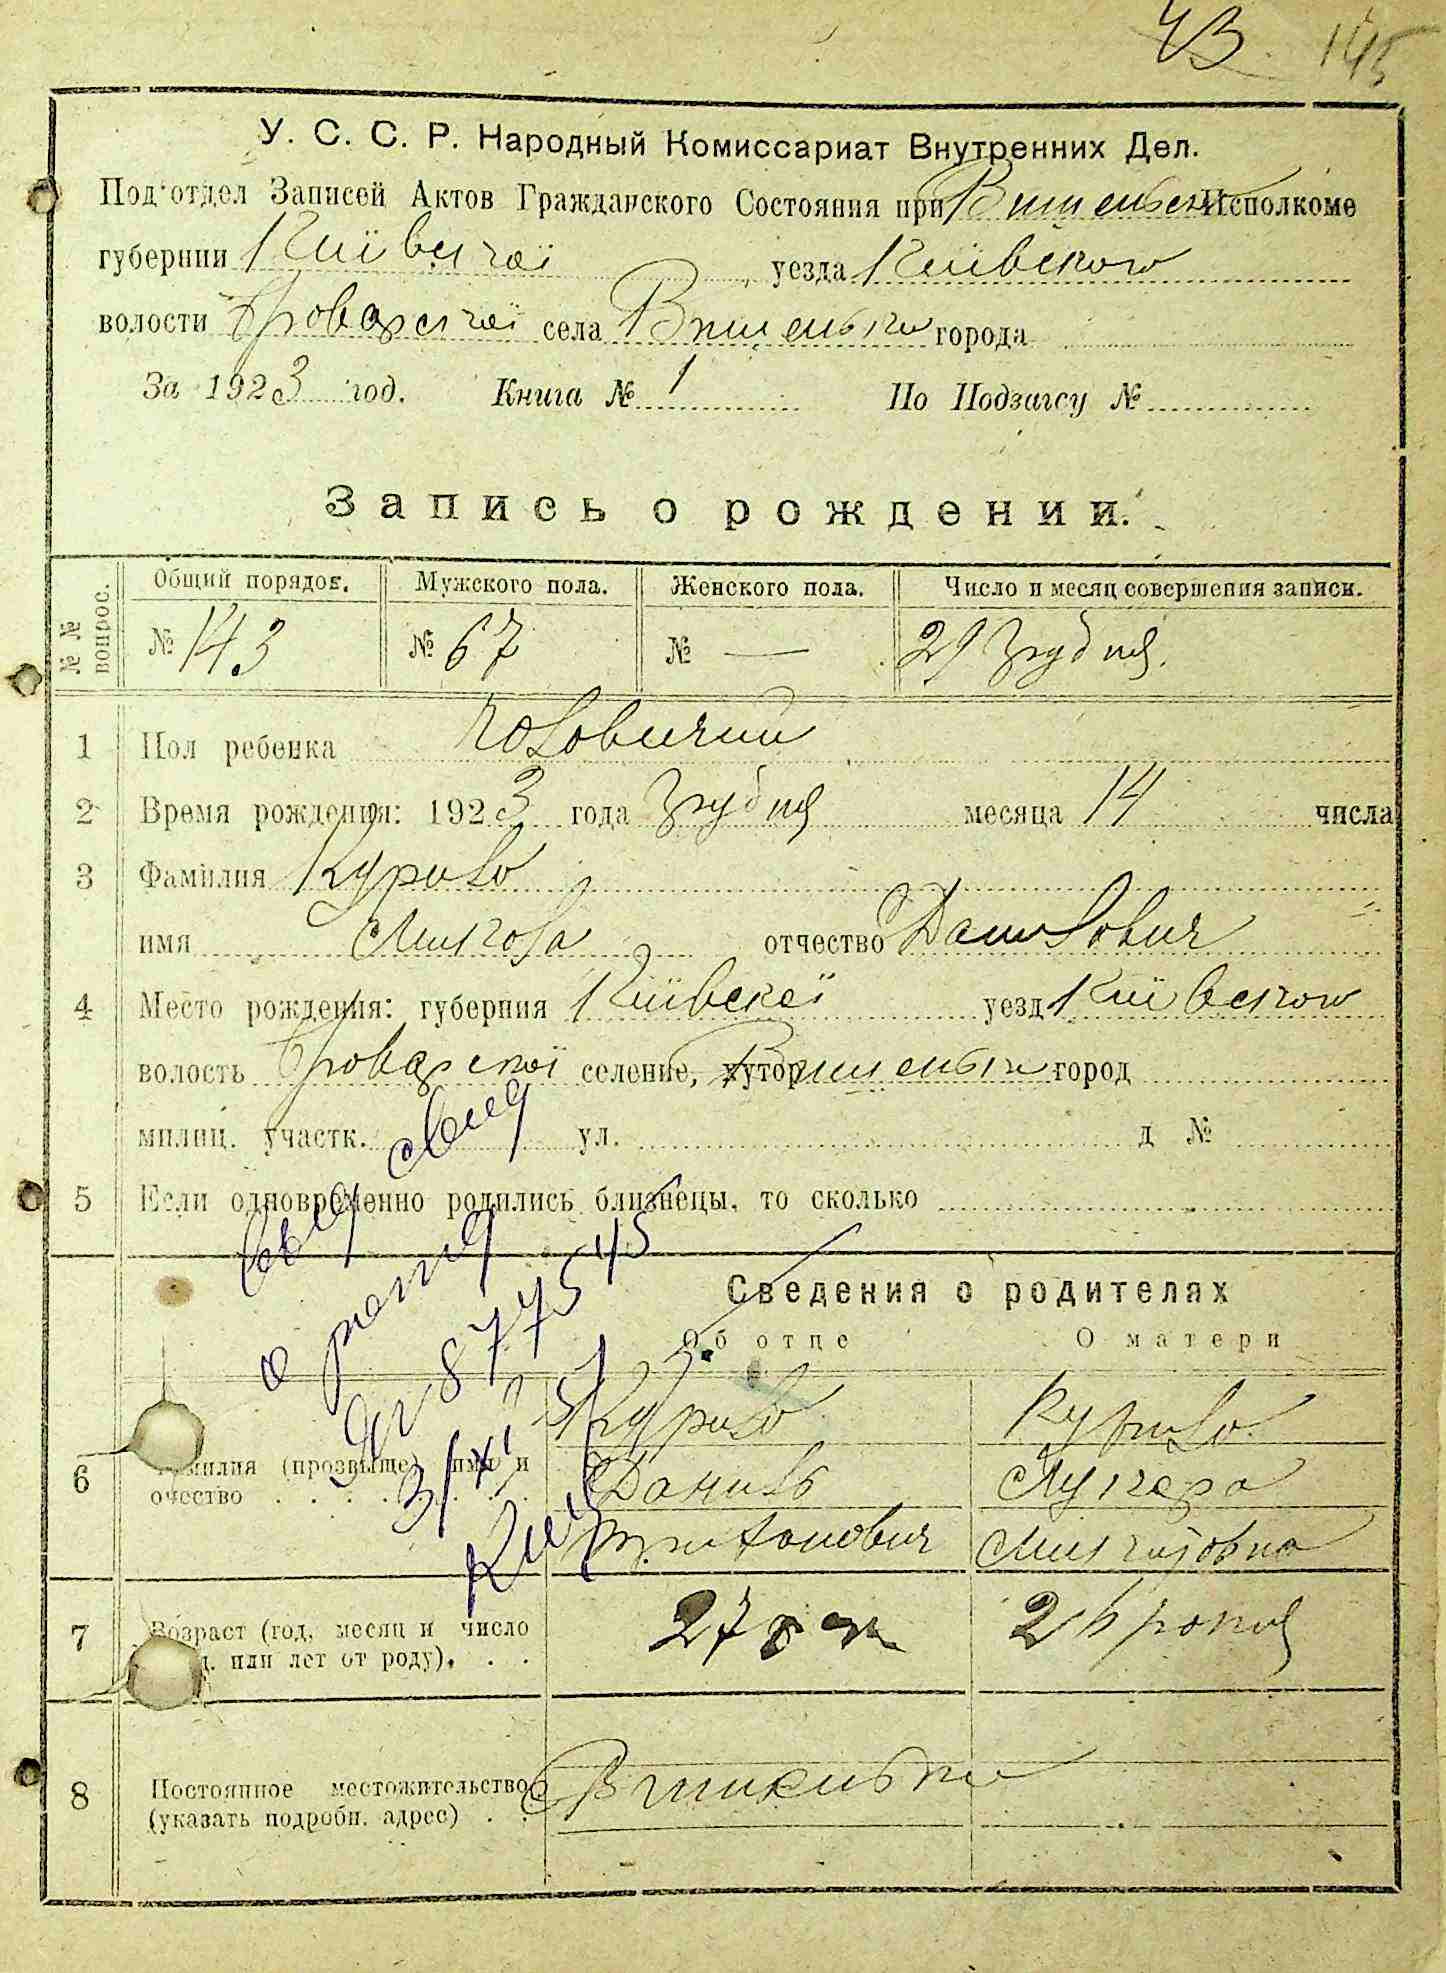 43. 145
У. С. С. Р. Народный Комиссариат Внутренних Дел.
Под'отдел Записей Актов Гражданского Состояния при Вишеньск Исполкоме
губернии Київської уезда Київського
волости Броварської села Вишеньки города
За 1923 год. Книга № 1 По Подзагсу №
Запись о рождении.
№№ вопрос. Общий порядов. Мужского пола. Женского пола. Число и месяц совершения записи.
№ 143 № 67 № — 29 Грудня.
1 Пол ребенка Чоловичий
2 Время рождения: 1923 года Грудня месяца 14 числа
3 Фамилия Курило
имя Микола отчество Данилович
4 Место рождения: губерния Київскої уезд Київского
волость Броварскої селение, хутор Вишеньки город
милиц. участк. ул. д №
5 Если одновременно родились близнецы, то сколько
Выд свид
о рожд
877545
3/XI
Сведения о родителях
Об отце О матери
6 Фамилия (прозвыще) имя и очество Курило Курило
Данило Лукера
Миколовна
7 Возраст (год, месяц и число д. или лет от роду) 27 26 рокив
8 Постоянное местожительство (указать подробн. адрес) Вишеньки